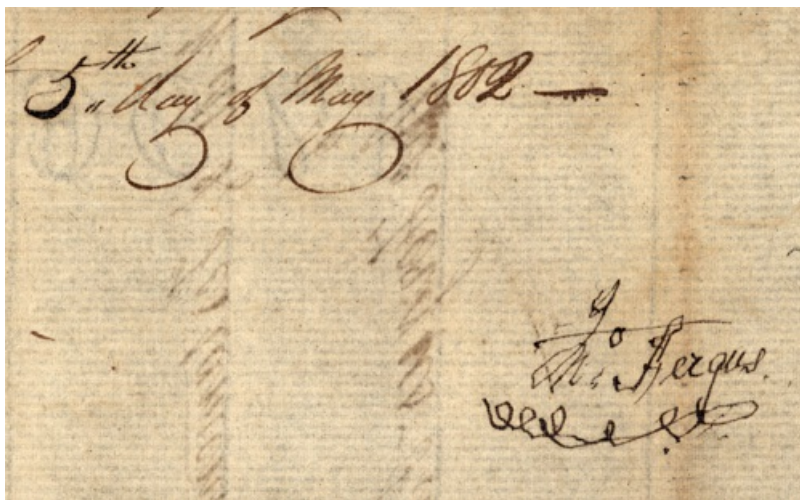 5th day of May 1802 —
Tho Fergus.